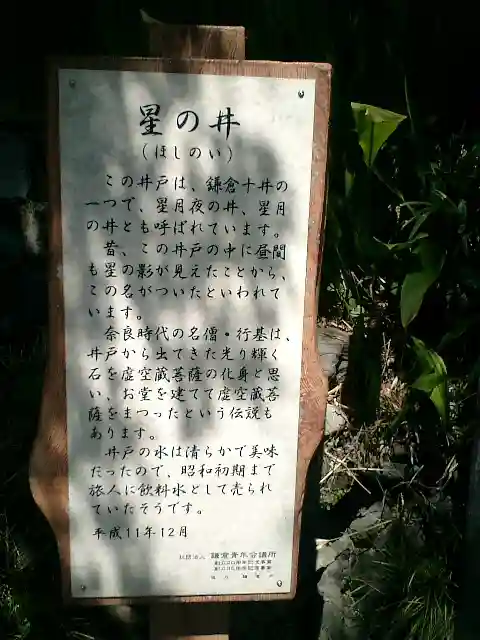 星の井
(ほしのい)
この井戸は、鎌倉十井の
一つで、星月夜の井、星月
の井とも呼ばれています。
昔、この井戸の中に昼間
も星の影が見えたことから、
この名がついたといわれて
います。
奈良時代の名僧・行基は、
井戸から出てきた光り輝く
石を虚空蔵菩薩の化身と思
い、お堂を建てて虚空蔵菩
薩をまつったという伝説も
あります。
井戸の水は清らかで美味
だったので、昭和初期まで
旅人に飲料水として売られ
ていたそうです。
平成11年12月
社団法人 鎌倉青年会議所